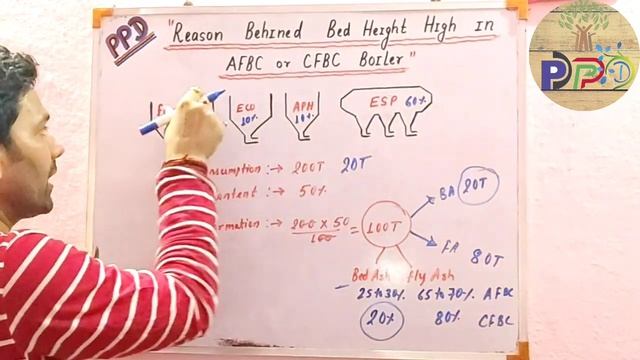 PPD "Reason Behined Bed Height High In
AFBC or CFBC Boiler"
PPD
ECO 20%
APH 10%
ESP 60%
nsumption :→ 200T 20T
ntent :→ 50%
rmation :→ 200 x 50 / 100 = 100T
BA 20T
FA 80T
Bed Ash Fly Ash
25 to 30% 65 to 70% AFBC
20% 80% CFBC